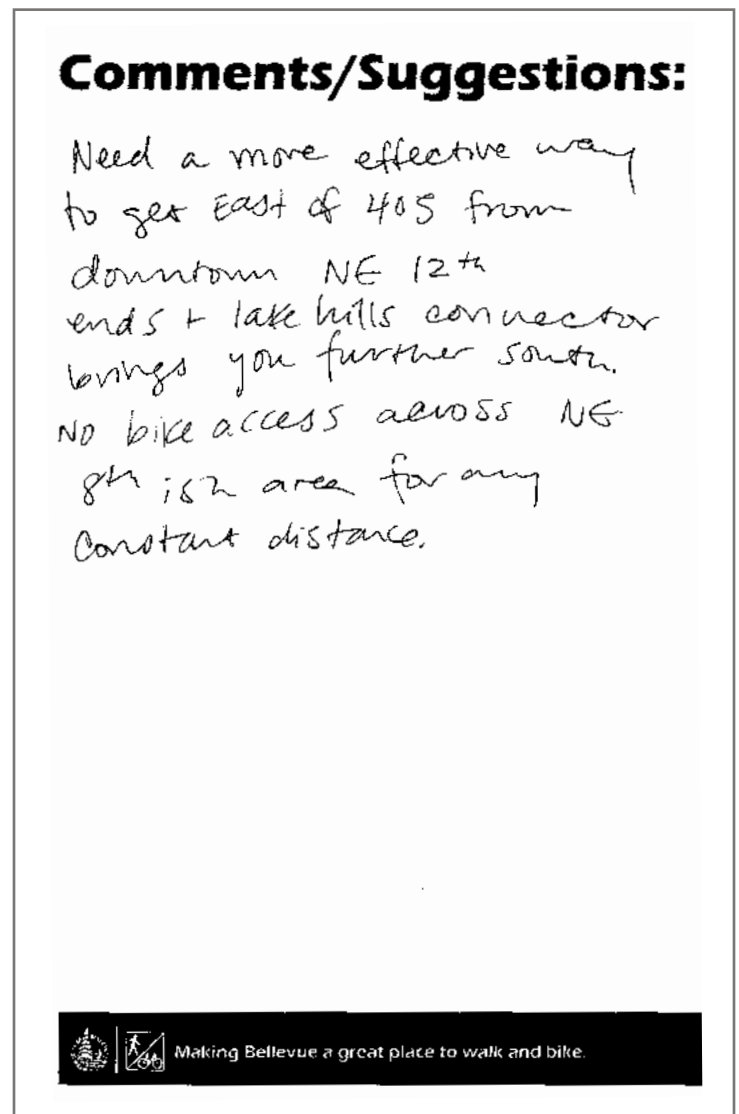 Comments/Suggestions:
Need a more effective way
to get East of 405 from
downtown NE 12th
ends + lake hills connector
brings you further south.
NO bike access across NE
8th ish area for any
Constant distance.
Making Bellevue a great place to walk and bike.